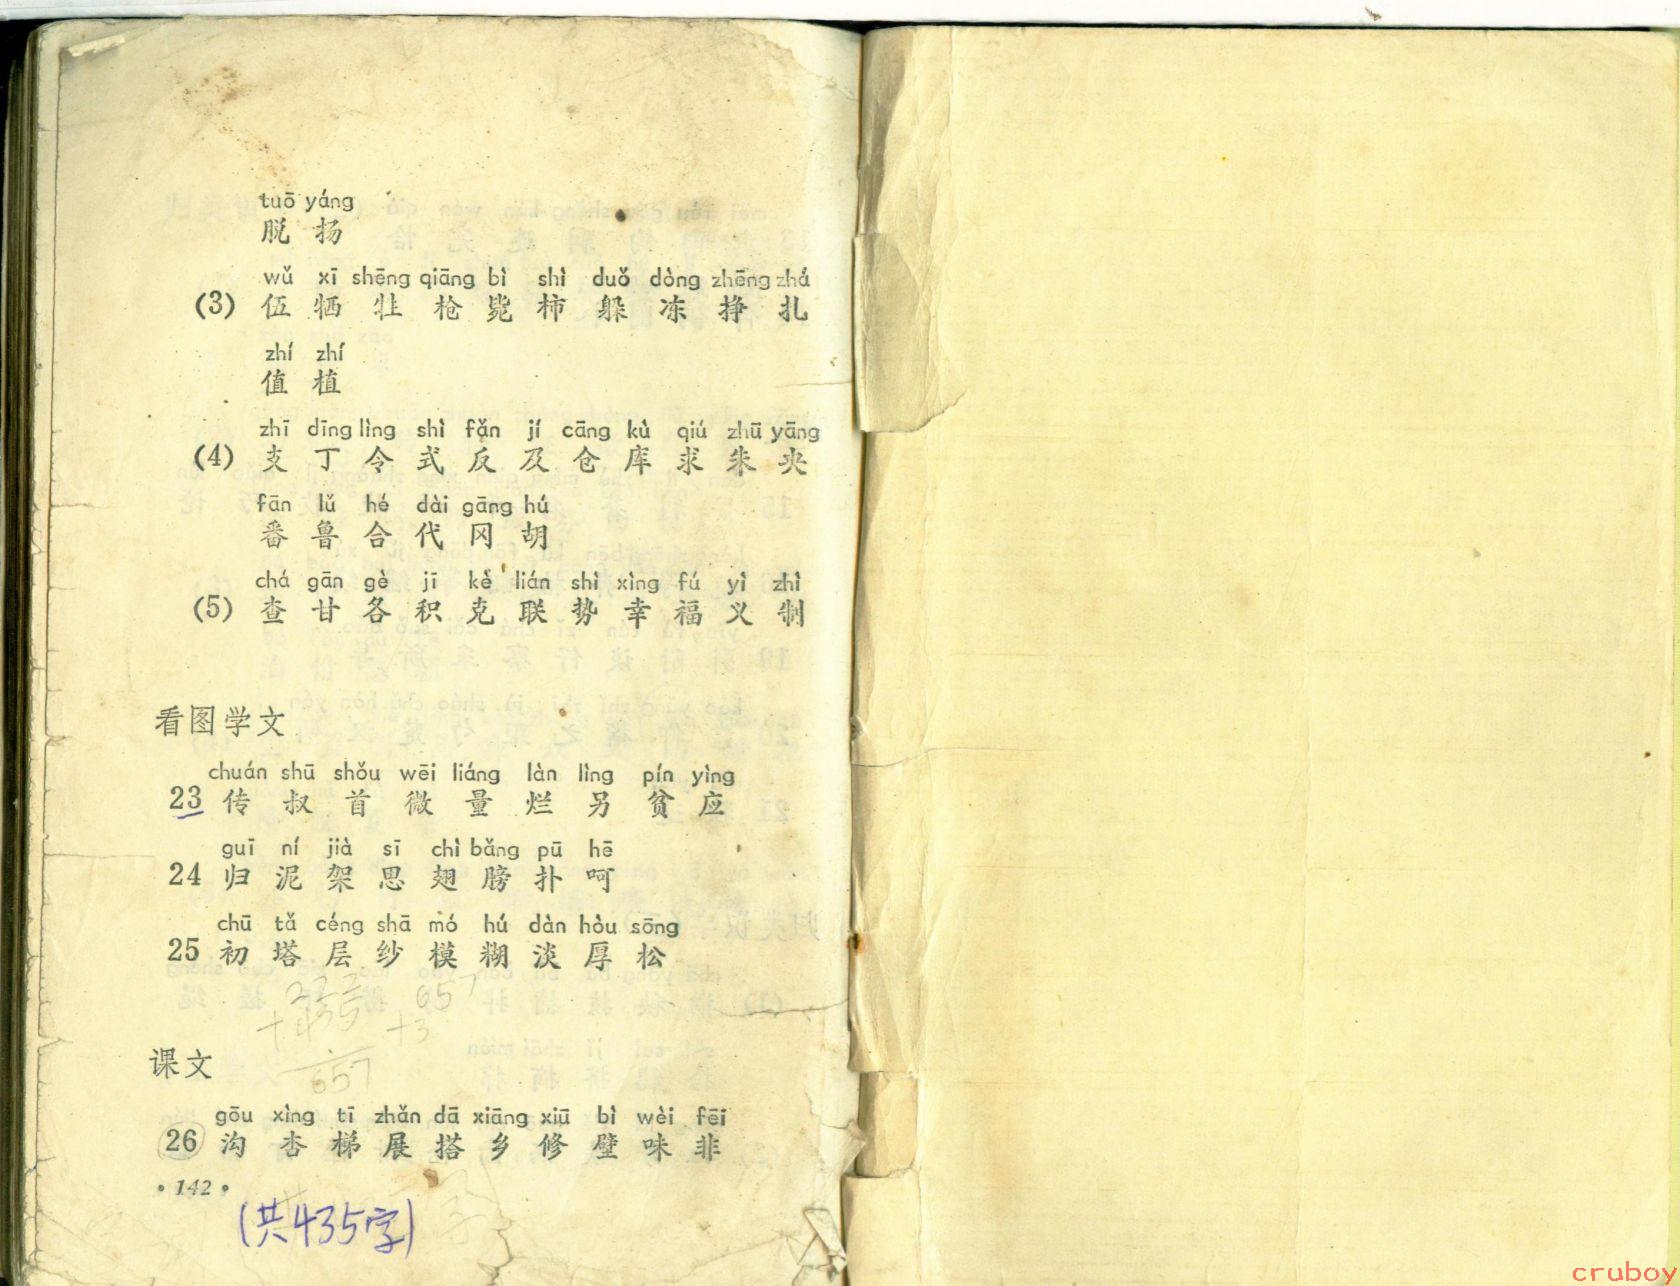 tuō yáng
脱 扬
wǔ xī shēng qiāng bì shì duǒ dòng zhēng zhá
(3) 伍 牺 牲 枪 毙 柿 躲 冻 挣 扎
zhí zhí
值 植
zhī dīng lìng shì fǎn jí cāng kù qiú zhū yāng
(4) 支 丁 令 式 反 及 仓 库 求 朱 央
fān lǔ hé dài gāng hú
番 鲁 合 代 冈 胡
chá gān gè jī kè lián shì xìng fú yì zhì
(5) 查 甘 各 积 克 联 势 幸 福 义 制
看图学文
chuán shū shǒu wēi liáng làn lìng pín yìng
23 传 叔 首 微 量 烂 另 贫 应
guī ní jià sī chì bǎng pū hē
24 归 泥 架 思 翅 膀 扑 呵
chū tǎ céng shā mó hú dàn hòu sōng
25 初 塔 层 纱 模 糊 淡 厚 松
657
+435 +3
657
课文
gōu xìng tī zhǎn dā xiāng xiū bì wèi fēi
26 沟 杏 梯 展 搭 乡 修 壁 味 非
• 142 •
(共435字)
cruboy